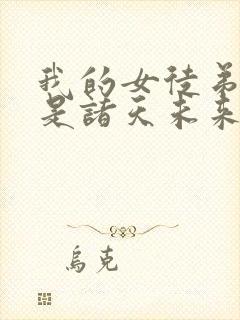 我的女徒弟
是諸天未來
烏克